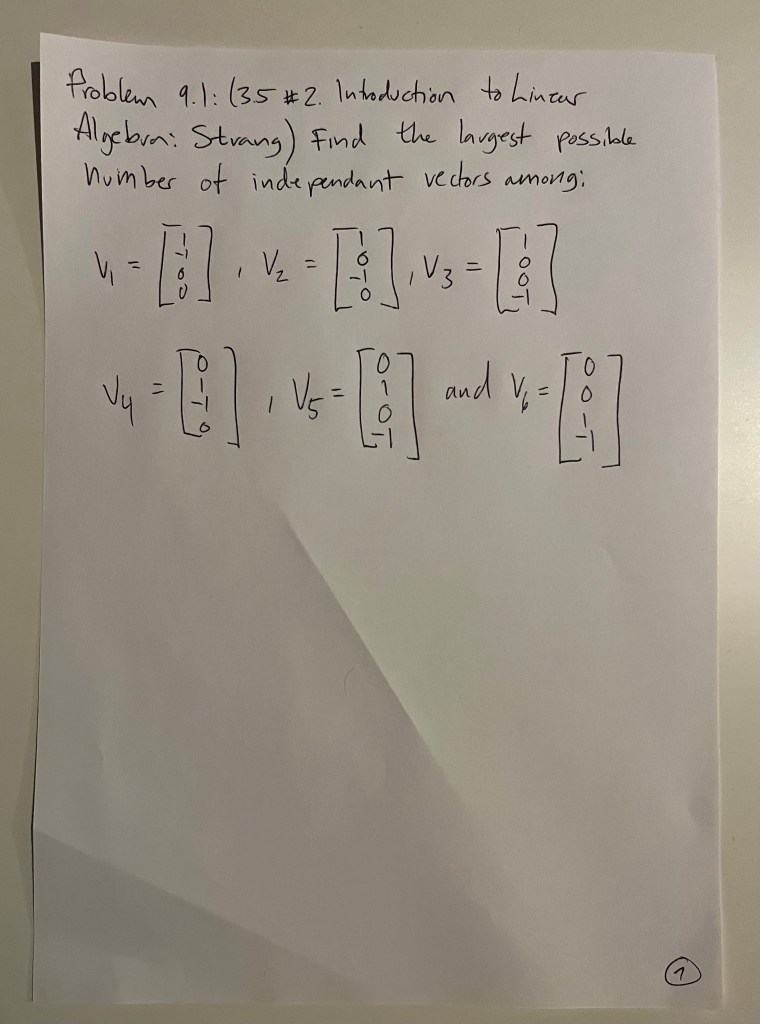 Problem 9.1: (3.5 #2. Introduction to Linear
Algebra: Strang) Find the largest possible
number of independant vectors among:
V₁ = [1 -1 0 0], V₂ = [1 0 -1 0], V₃ = [1 0 0 -1]
V₄ = [0 1 -1 0], V₅ = [0 1 0 -1] and V₆ = [0 0 1 -1]
1